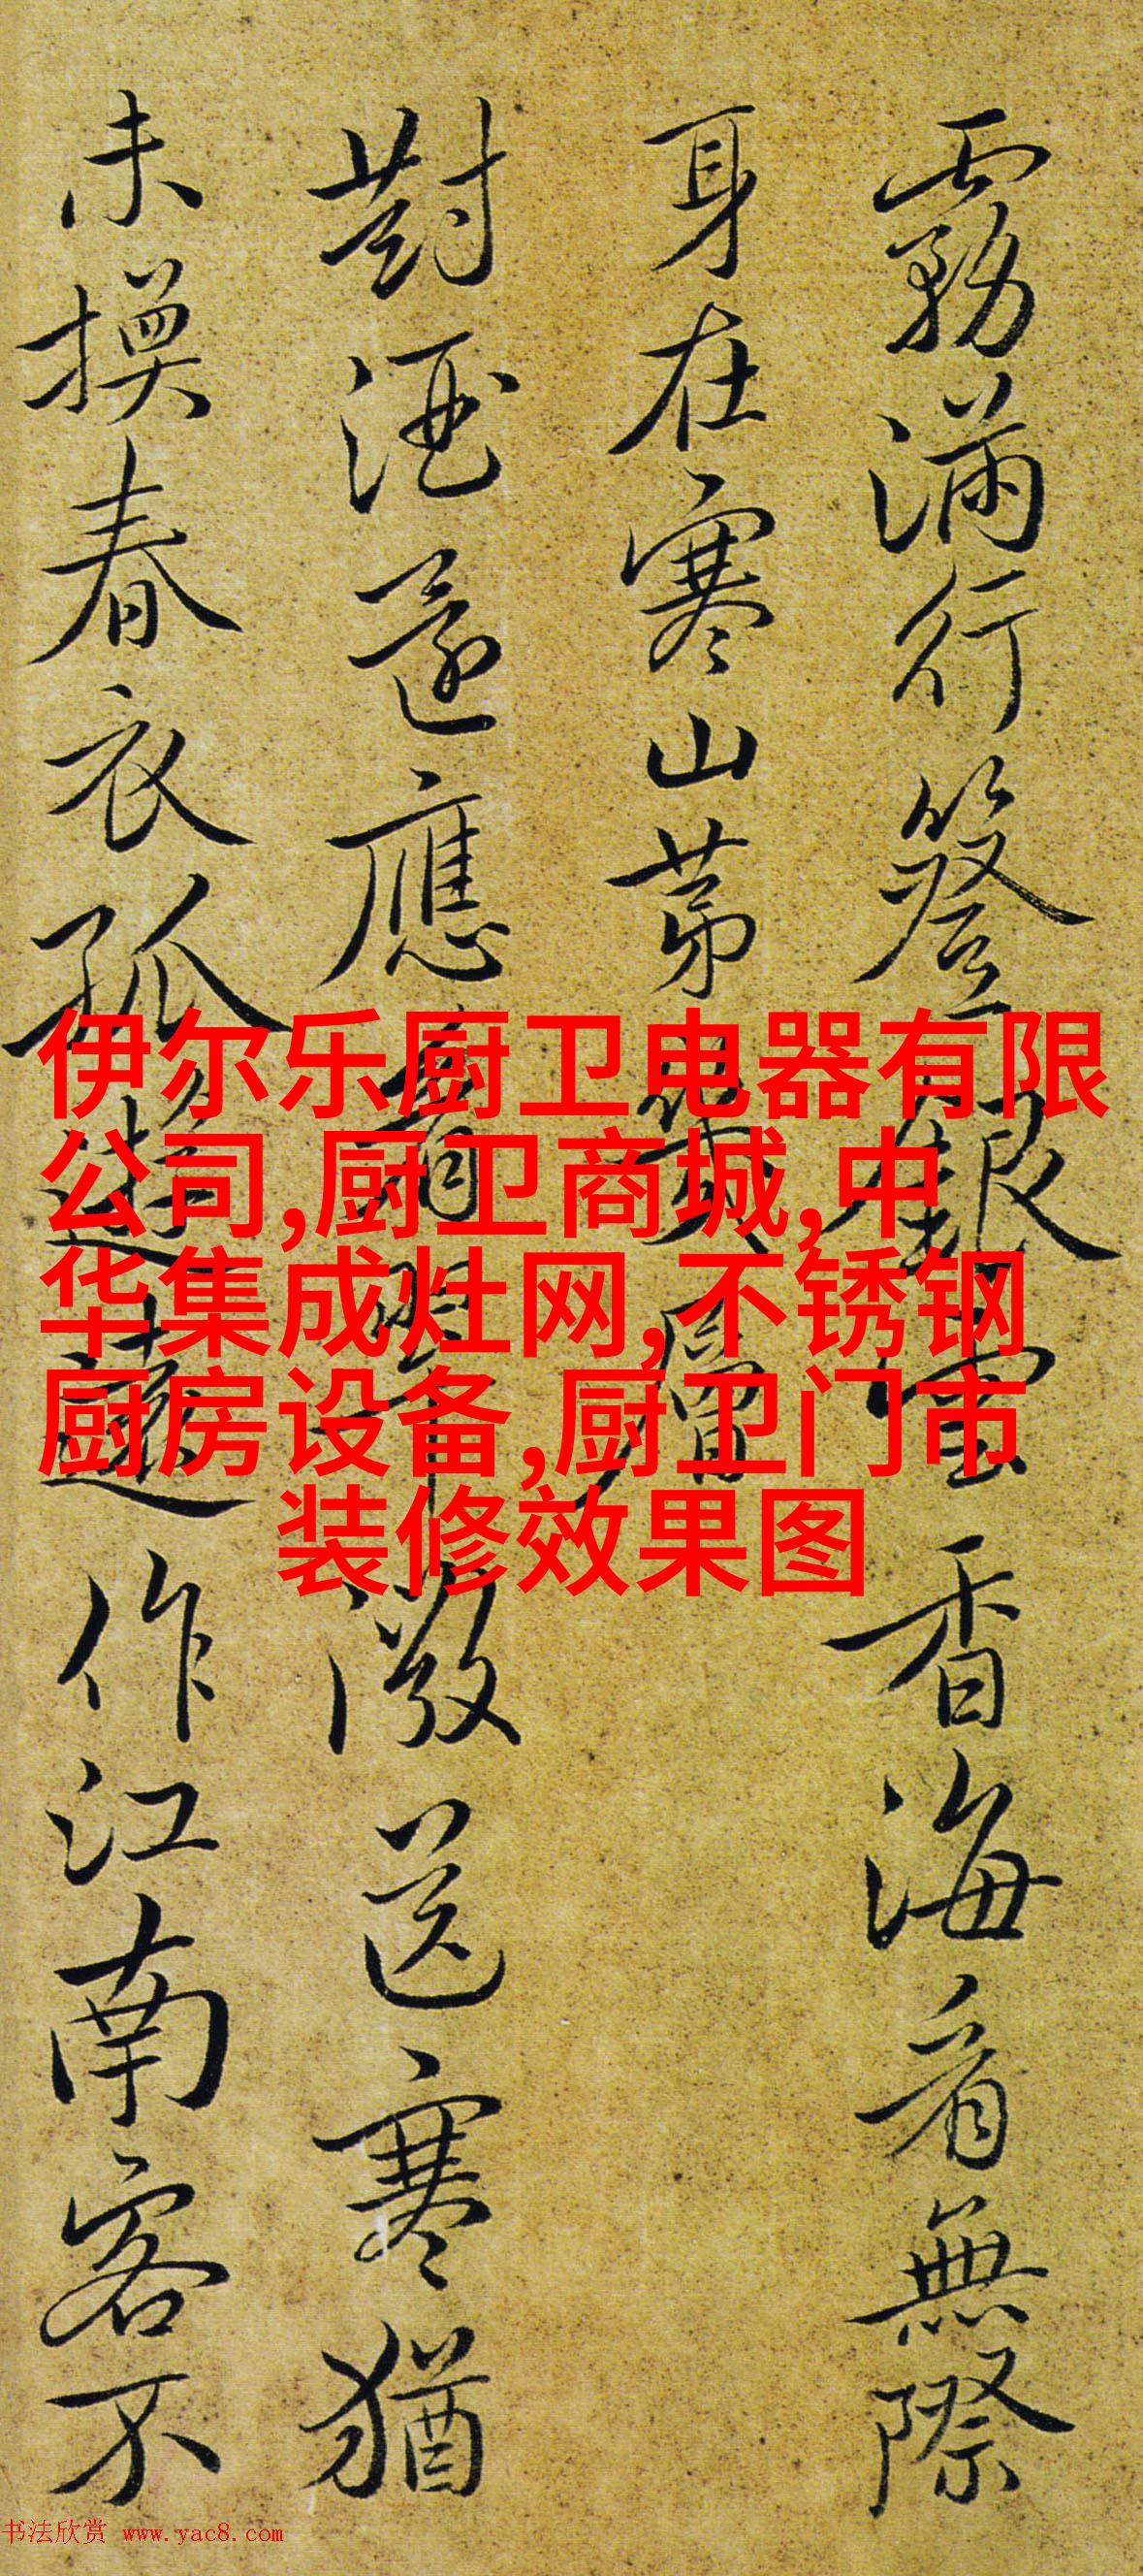 霧滿行簦銀雲香海看無際
身在寒山第幾層
對酒還應看醉
微送寒猶
未換春衣孤
遊遠作江南客不
伊尔乐厨卫电器有限
公司,厨卫商城,中
华集成灶网,不锈钢
厨房设备,厨卫门市
装修效果图
书法欣赏 www.yac8.com